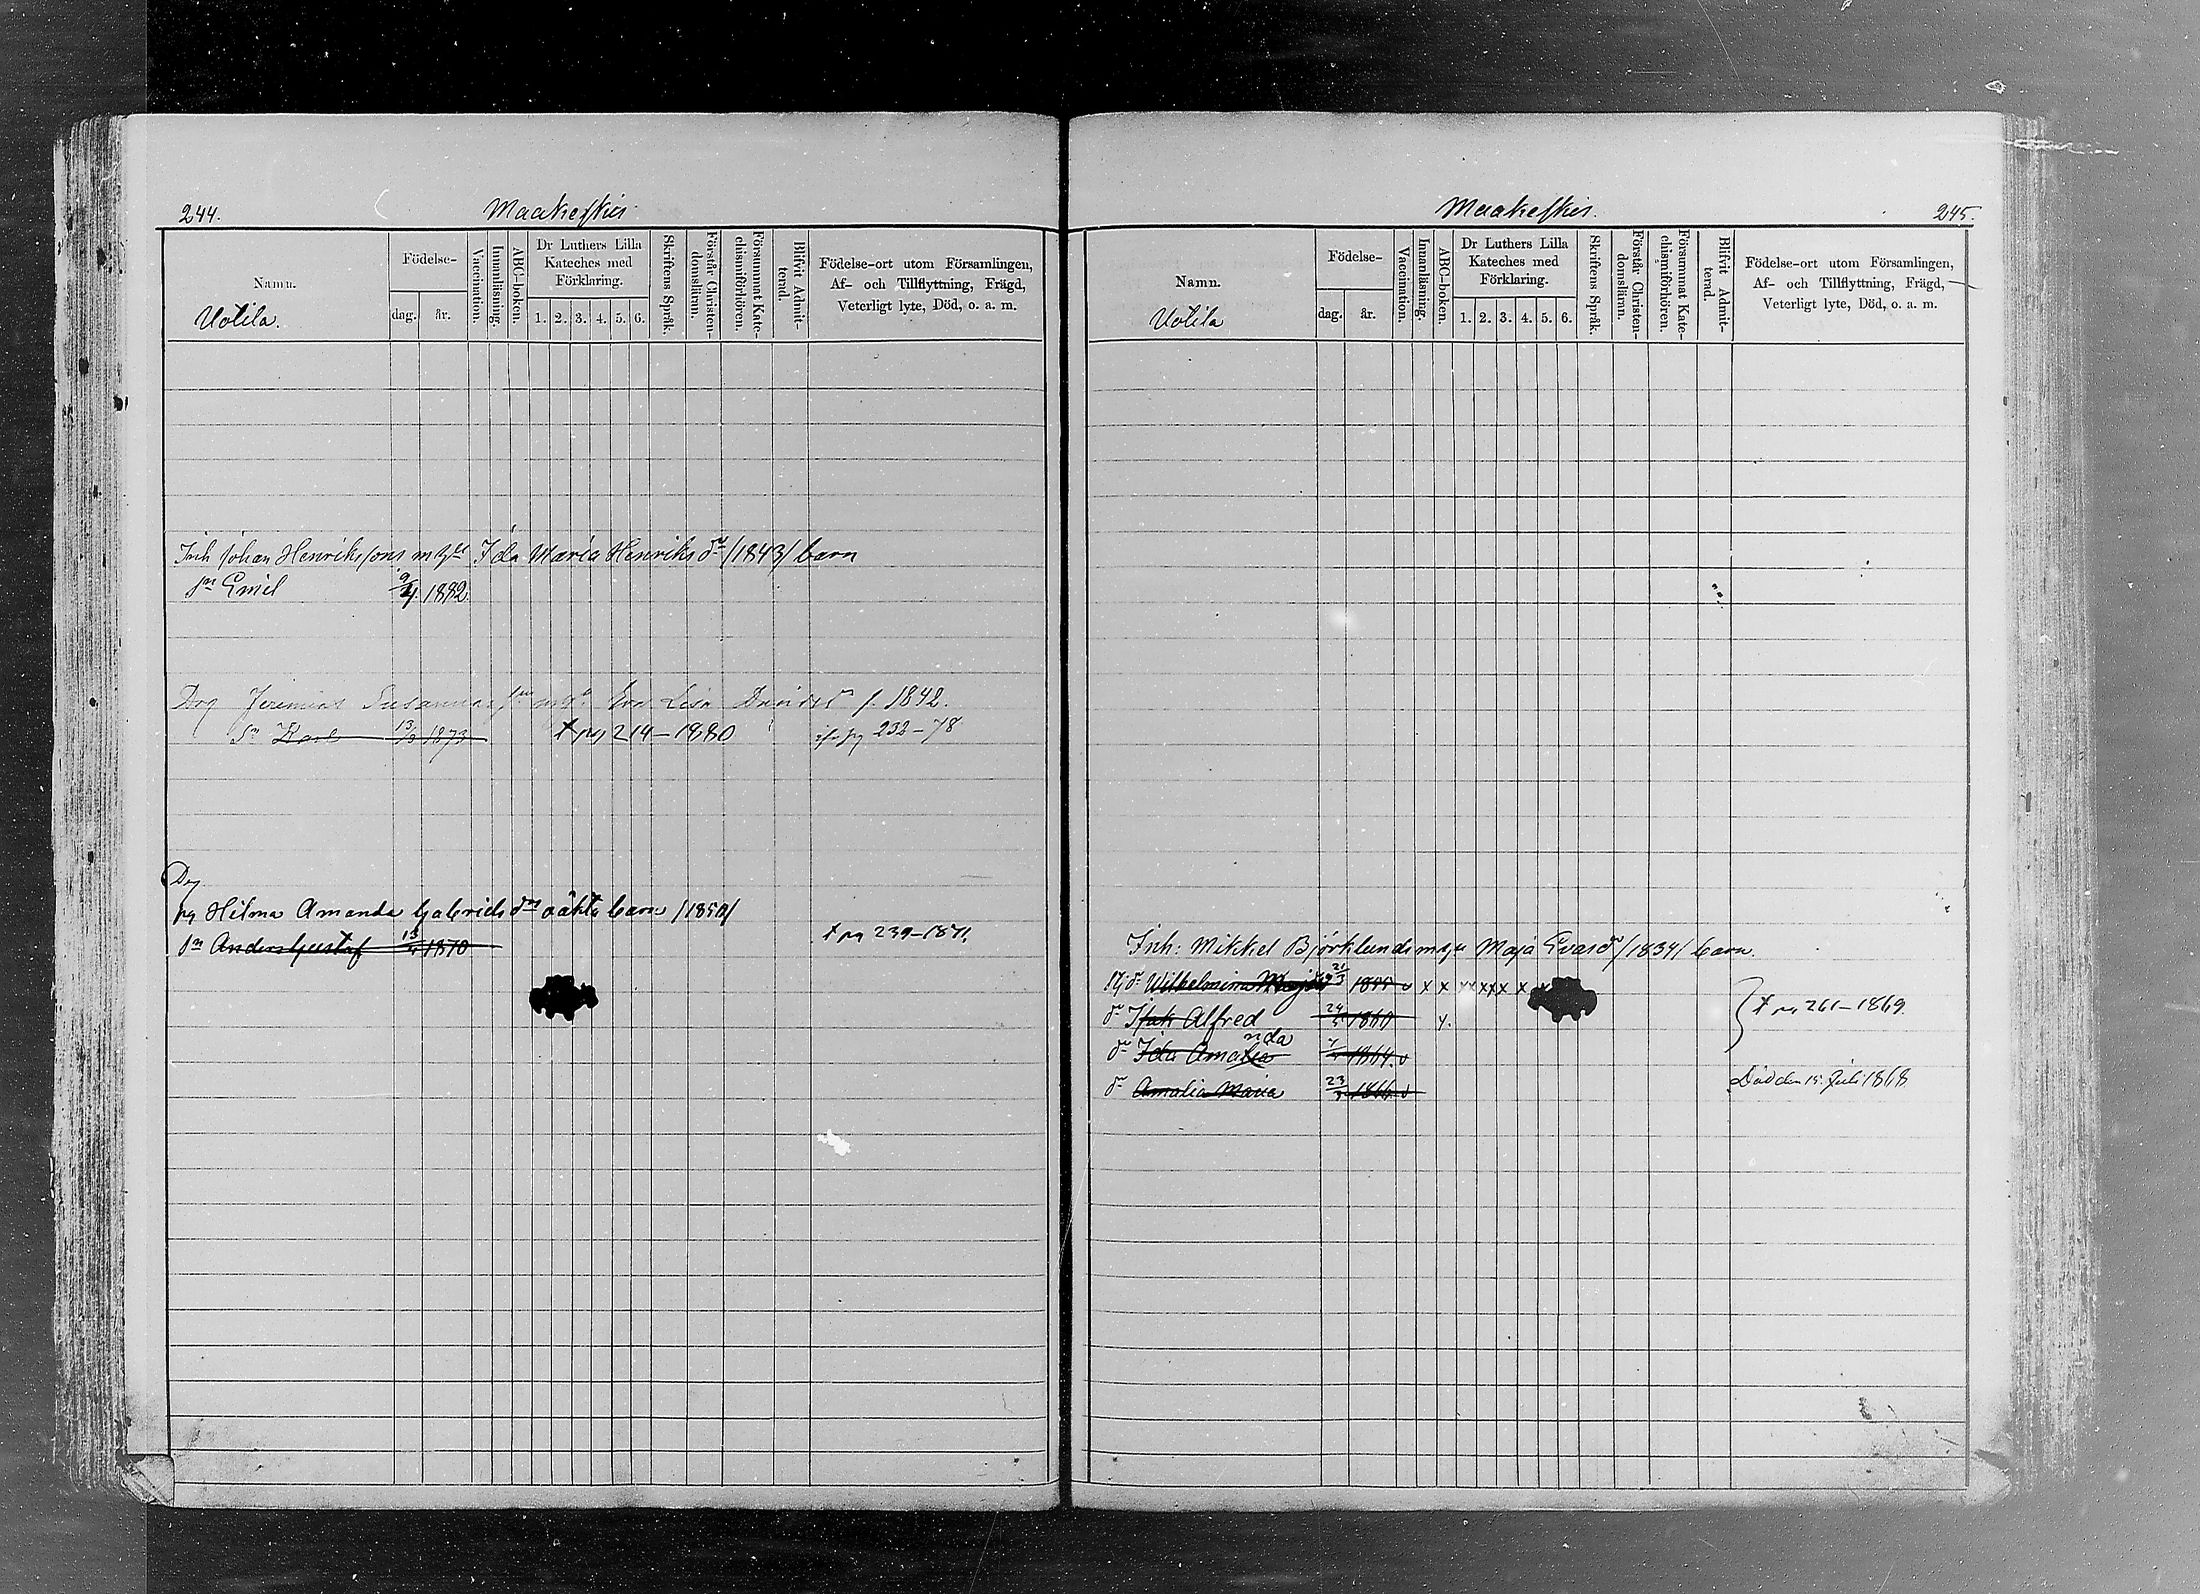 244.
Maakeskis
Namn.
Uotila.
Födelse-
dag.
år.
Vaccination.
Innanläsning.
ABC-boken.
Dr Luthers Lilla
Kateches med
Förklaring.
1. 2. 3. 4. 5. 6.
Skriftens Språk.
Förstår Christen-
domsläran.
Försummat Kate-
chismiförhören.
Blifvit Admit-
terad.
Födelse-ort utom Församlingen,
Af- och Tillflyttning, Frägd,
Veterligt lyte, Död, o. a. m.
Inh Johan Henrikssons m hu Ida Maria Henriks dr /1843/ barn
sn Emil 9/4. 1882.
Drg Jeremias Susannas sn m hu Eva Lisa Davids dr f. 1842.
Sn Karl 13/3 1873 † pg 214-1880 pg 232-78
Drg
pg Hilma Amanda Gabriels dr oäkta barn /1850/
sn Anders Gustaf 13/ 1870 † pg 239-1871,
Maakeskis.
245.
Namn.
Uotila
Födelse-
dag.
år.
Vaccination.
Innanläsning.
ABC-boken.
Dr Luthers Lilla
Kateches med
Förklaring.
1. 2. 3. 4. 5. 6.
Skriftens Språk.
Förstår Christen-
domsläran.
Försummat Kate-
chismiförhören.
Blifvit Admit-
terad.
Födelse-ort utom Församlingen,
Af- och Tillflyttning, Frägd,
Veterligt lyte, Död, o. a. m.
Inh: Mikkel Björklunds m hu Maja Evas dr /1834/ barn.
dr Wilhelmina 21/3 1855 v x x x x x x x x
Isak Alfred 24/ 1860 y. † pg 261-1869.
nda
dr Ida Amalia 1864. v
dr Amalia Maria 23/3 1866. v Död den 15 Juli 1868